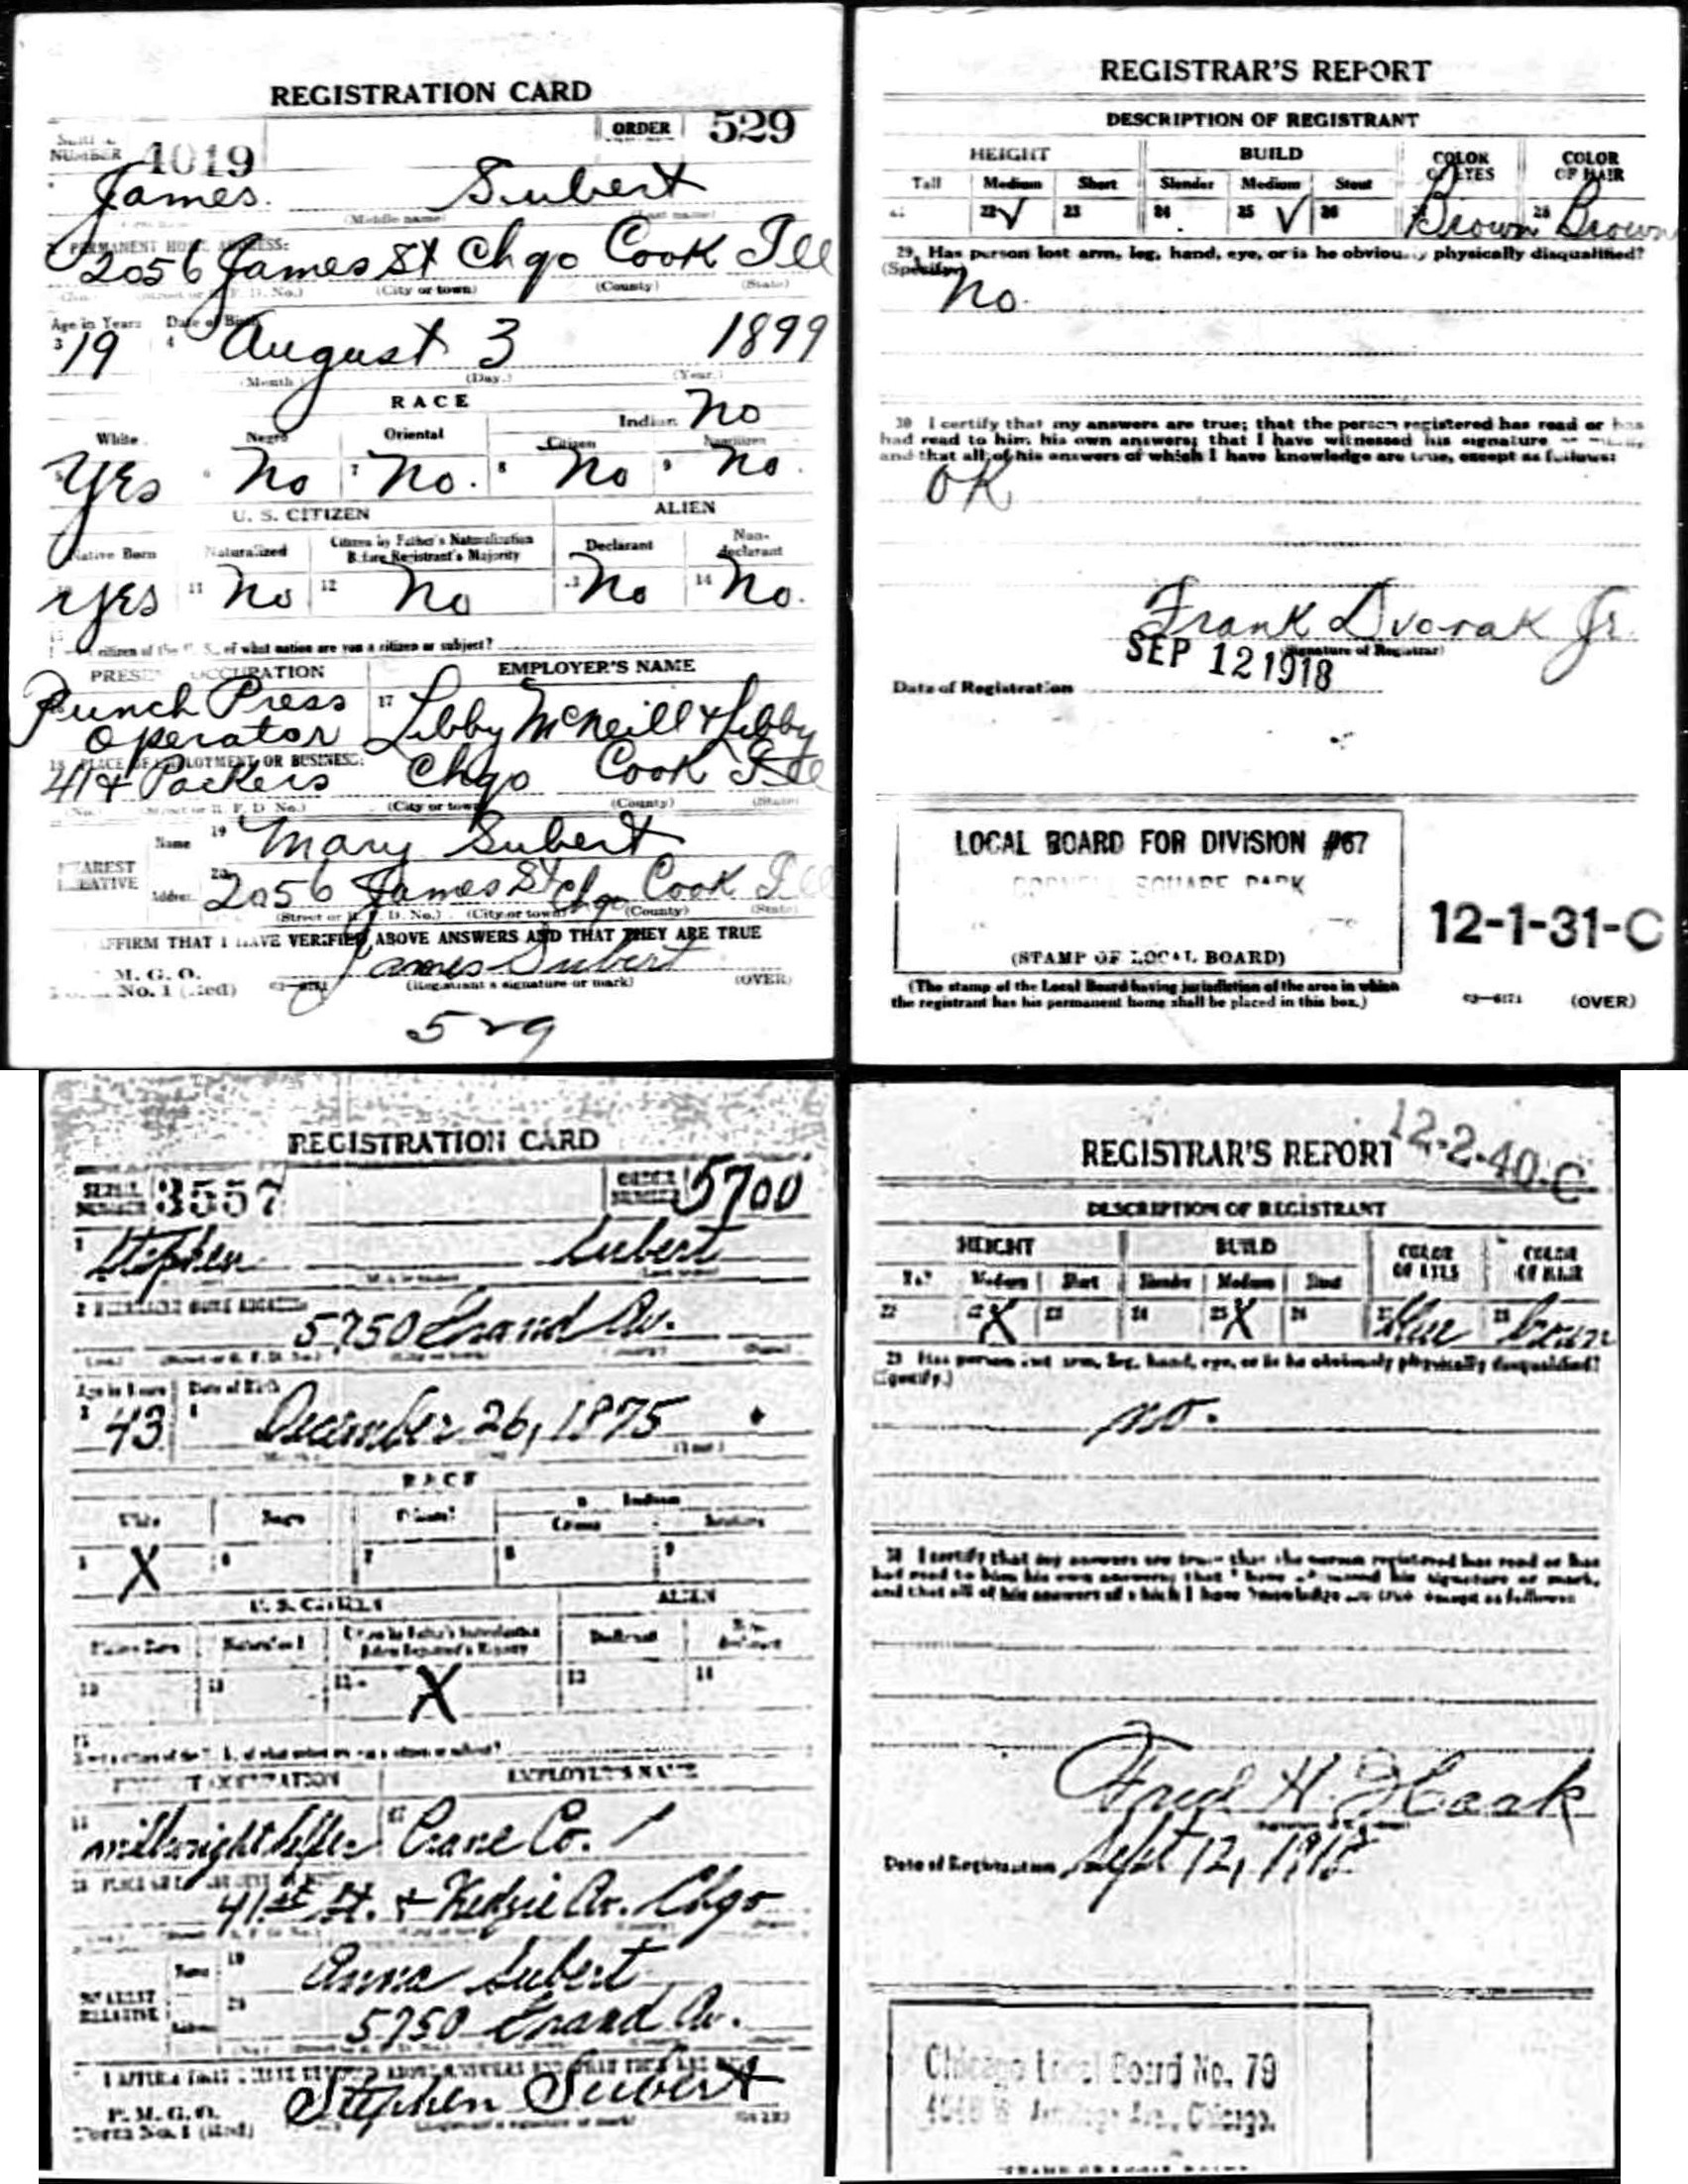 REGISTRATION CARD
NUMBER 4019 ORDER 529
James Subert
(Middle name)
PERMANENT HOME ADDRESS:
2056 James St Chgo Cook Ill
(City or town) (County) (State)
Age in Years Date of Birth
3 19 4 August 3 1899
(Month) (Day.) (Year.)
RACE
White Negro Oriental Indian No
Citizen Noncitizen
Yes 6 No 7 No. 8 No 9 No.
U. S. CITIZEN ALIEN
Native Born Naturalized Citizen by Father's Naturalization Before Registrant's Majority Declarant Non-declarant
Yes 11 No 12 No No 14 No.
citizen of the U. S., of what nation are you a citizen or subject?
PRESENT OCCUPATION EMPLOYER'S NAME
Punch Press 17 Libby McNeill & Libby
Operator
18 PLACE OF EMPLOYMENT OR BUSINESS:
41 & Packers Chgo Cook Ill
(No.) (Street or R. F. D. No.) (City or town) (County) (State)
Name 19 Mary Subert
NEAREST RELATIVE
Address 20 2056 James St Chgo Cook Ill
(Street or R. F. D. No.) (City or town) (County) (State)
AFFIRM THAT I HAVE VERIFIED ABOVE ANSWERS AND THAT THEY ARE TRUE
James Subert
M. G. O.
No. 1 (Red) (Registrant's signature or mark) (OVER)
529
REGISTRAR'S REPORT
DESCRIPTION OF REGISTRANT
HEIGHT BUILD COLOR OF EYES COLOR OF HAIR
Tall Medium Short Slender Medium Stout
21 22 ✓ 23 24 25 ✓ 26 Brown 28 Brown
29 Has person lost arm, leg, hand, eye, or is he obviously physically disqualified?
(Specify.)
No.
30 I certify that my answers are true; that the person registered has read or has
had read to him his own answers; that I have witnessed his signature or mark,
and that all of his answers of which I have knowledge are true, except as follows:
OK
Frank Dvorak Jr.
(Signature of Registrar)
SEP 12 1918
Date of Registration
LOCAL BOARD FOR DIVISION #67
CORNELL SQUARE PARK
(STAMP OF LOCAL BOARD)
12-1-31-C
(The stamp of the Local Board having jurisdiction of the area in which
the registrant has his permanent home shall be placed in this box.)
03—6171 (OVER)
REGISTRATION CARD
SERIAL NUMBER 3557 ORDER NUMBER 5700
1 Stephen Subert
2 PERMANENT HOME ADDRESS
5750 Grand Av.
Age in Years Date of Birth
3 43 4 December 26, 1875
RACE
White Negro Oriental Indian
Citizen Noncitizen
5 X 6 7 8 9
U. S. CITIZEN ALIEN
Native Born Naturalized Citizen by Father's Naturalization Before Registrant's Majority Declarant Non-declarant
10 11 12 X 13 14
15
PRESENT OCCUPATION EMPLOYER'S NAME
millwright helper 17 Crane Co.
18 41st St. + Kedzie Av. Chgo
Name 19 Anna Subert
NEAREST RELATIVE
Address 20 5750 Grand Av.
I AFFIRM THAT I HAVE VERIFIED ABOVE ANSWERS AND THAT THEY ARE TRUE
Stephen Subert
P. M. G. O.
Form No. 1 (Red) (Registrant's signature or mark) (OVER)
12-2-40-C
REGISTRAR'S REPORT
DESCRIPTION OF REGISTRANT
HEIGHT BUILD COLOR OF EYES COLOR OF HAIR
Tall Medium Short Slender Medium Stout
X 23 24 25 X 26 27 Blue 28 brown
29 Has person lost arm, leg, hand, eye, or is he obviously physically disqualified?
(Specify.)
no.
30 I certify that my answers are true that the person registered has read or has
had read to him his own answers; that I have witnessed his signature or mark,
and that all of his answers of which I have knowledge are true except as follows
Fred H. Haak
Date of Registration Sept 12, 1918
Chicago Local Board No. 79
4048 W Armitage Ave., Chicago.